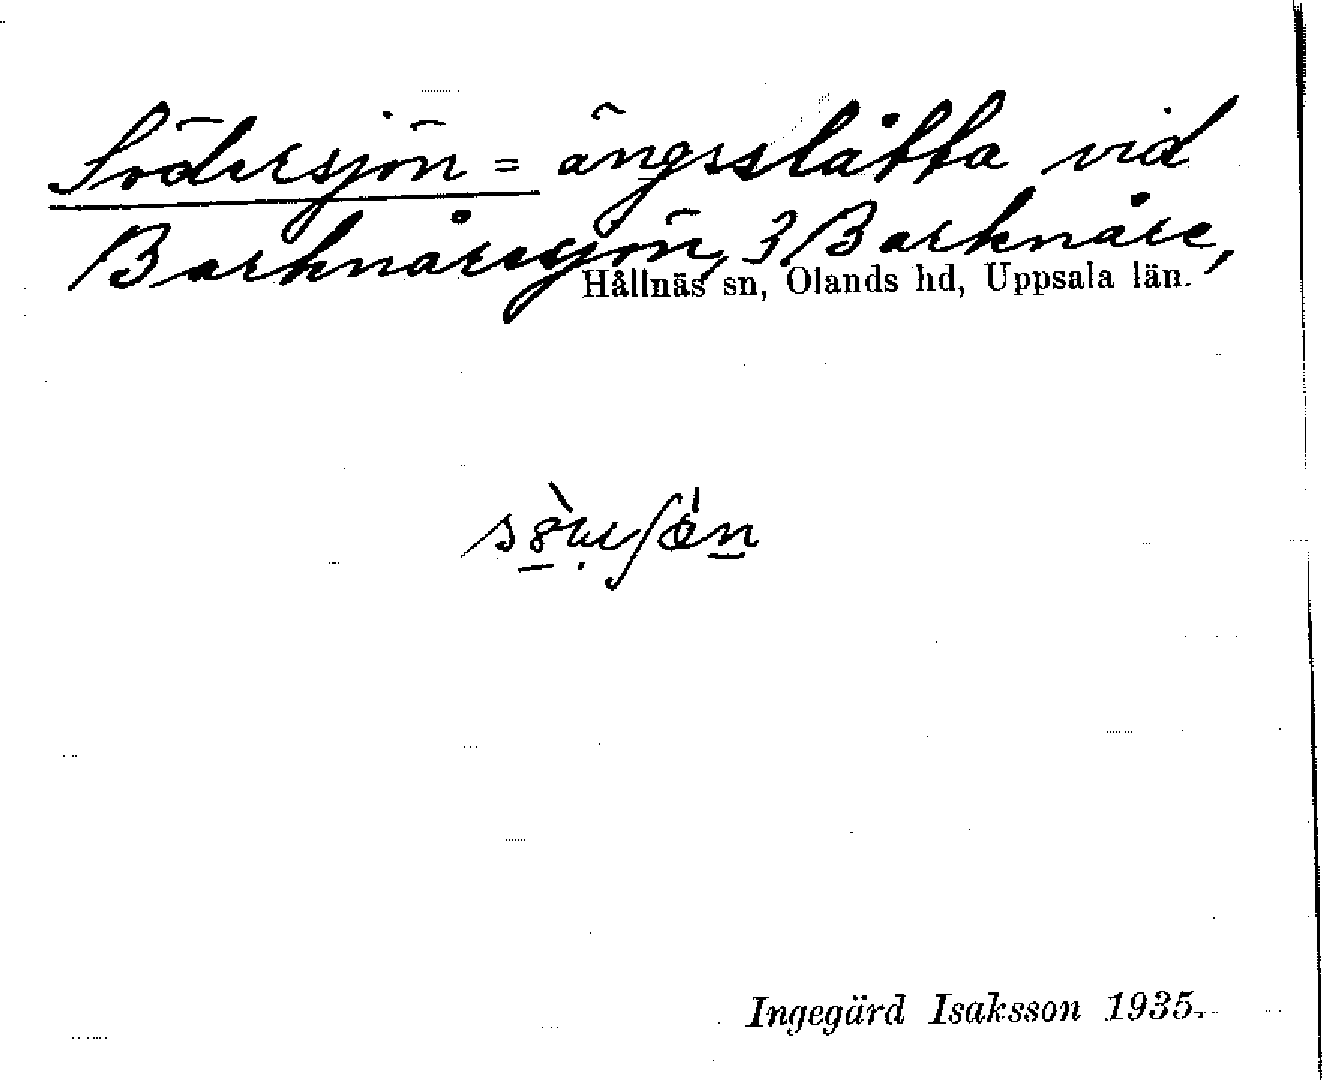 Södersjön = ängsslåtta vid
Barknåresjön, 3 Barknåre,
Hållnäs sn, Olands hd, Uppsala län.
Ingegärd Isaksson 1935.